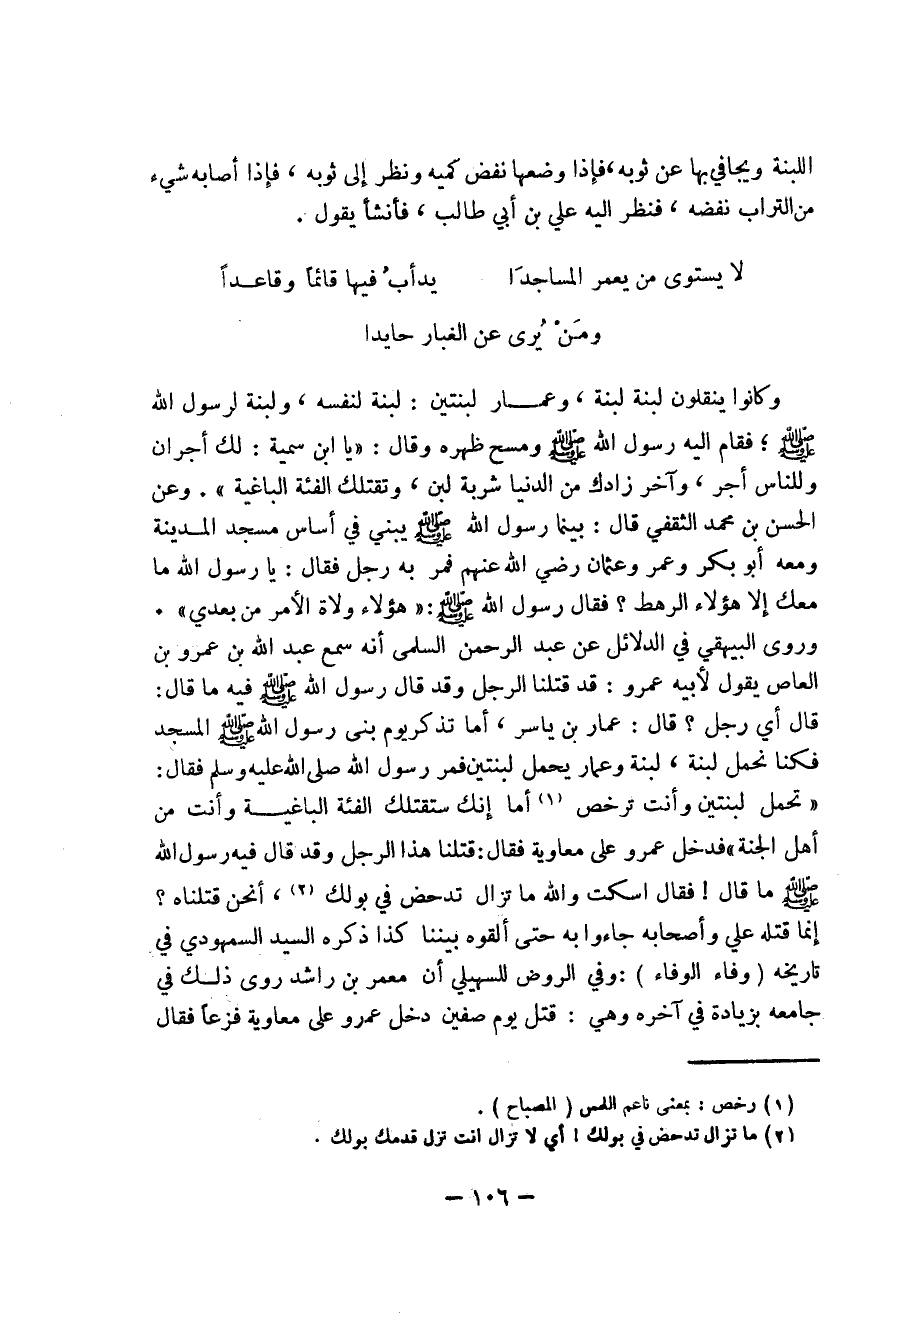 اللبنة ويجافي بها عن ثوبه، فإذا وضعها نفض كميه ونظر إلى ثوبه ، فإذا أصابه شيء
من التراب نفضه ، فنظر اليه علي بن أبي طالب ، فأنشأ يقول .
لا يستوى من يعمر المساجدَا يدأبُ فيها قائماً وقاعـداً
ومَنْ يُرى عن الغبار حايدا
وكانوا ينقلون لبنة لبنة ، وعمـــار لبنتين : لبنة لنفسه ، ولبنة لرسول الله
ﷺ ؛ فقام اليه رسول الله ﷺ ومسح ظهره وقال : «يا ابن سمية : لك أجران
وللناس أجر ، وآخر زادك من الدنيا شربة لبن ، وتقتلك الفئة الباغية » . وعن
الحسن بن محمد الثقفي قال : بينما رسول الله ﷺ يبني في أساس مسجد المـدينة
ومعه أبو بكر وعمر وعثمان رضي الله عنهم فمر به رجل فقال : يا رسول الله ما
معك إلا هؤلاء الرهط ؟ فقال رسول الله ﷺ :« هؤلاء ولاة الأمر من بعدي» .
وروى البيهقي في الدلائل عن عبد الرحمن السلمى أنه سمع عبد الله بن عمرو بن
العاص يقول لأبيه عمرو : قد قتلنا الرجل وقد قال رسول الله ﷺ فيه ما قال:
قال أي رجل ؟ قال : عمار بن ياسر ، أما تذكر يوم بنى رسول الله ﷺ المسجد
فكنا نحمل لبنة ، لبنة وعمار يحمل لبنتين فمر رسول الله صلى الله عليه وسلم فقال:
« تحمل لبنتين وأنت ترخص (١) أما إنك ستقتلك الفئة الباغيـــة وأنت من
أهل الجنة» فدخل عمرو على معاوية فقال: قتلنا هذا الرجل وقد قال فيه رسول الله
ﷺ ما قال ! فقال اسكت والله ما تزال تدحض في بولك (٢) ، أنحن قتلناه ؟
إنما قتله علي وأصحابه جاءوا به حتى ألقوه بيننا كذا ذكره السيد السمهودي في
تاريخه ( وفاء الوفاء ) : وفي الروض للسهيلي أن معمر بن راشد روى ذلـك في
جامعه بزيادة في آخره وهي : قتل يوم صفين دخل عمرو على معاوية فزعاً فقال
(١) رخص : بمعنى ناعم اللمس ( المصباح ) .
(٢) ما تزال تدحض في بولك ! أي لا تزال انت تزل قدمك بولك .
— ١٠٦ —